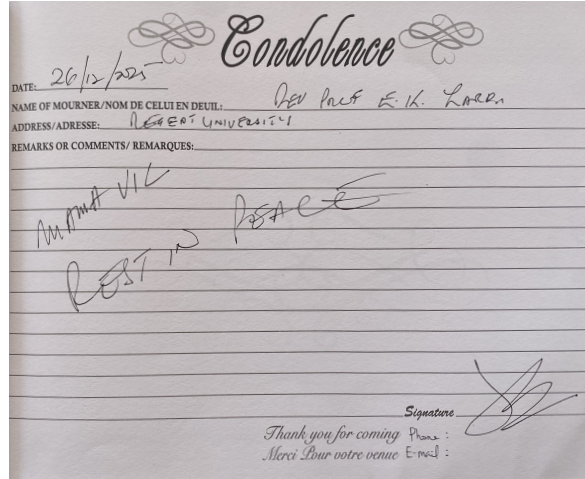 Condolence
DATE: 26/12/2025
NAME OF MOURNER/NOM DE CELUI EN DEUIL: REV PROF E. K. LARBI
ADDRESS/ADRESSE: REGENT UNIVERSITY
REMARKS OR COMMENTS/ REMARQUES:
MAMA VIC
REST IN PEACE
Signature
Thank you for coming Phone :
Merci Pour votre venue E-mail :